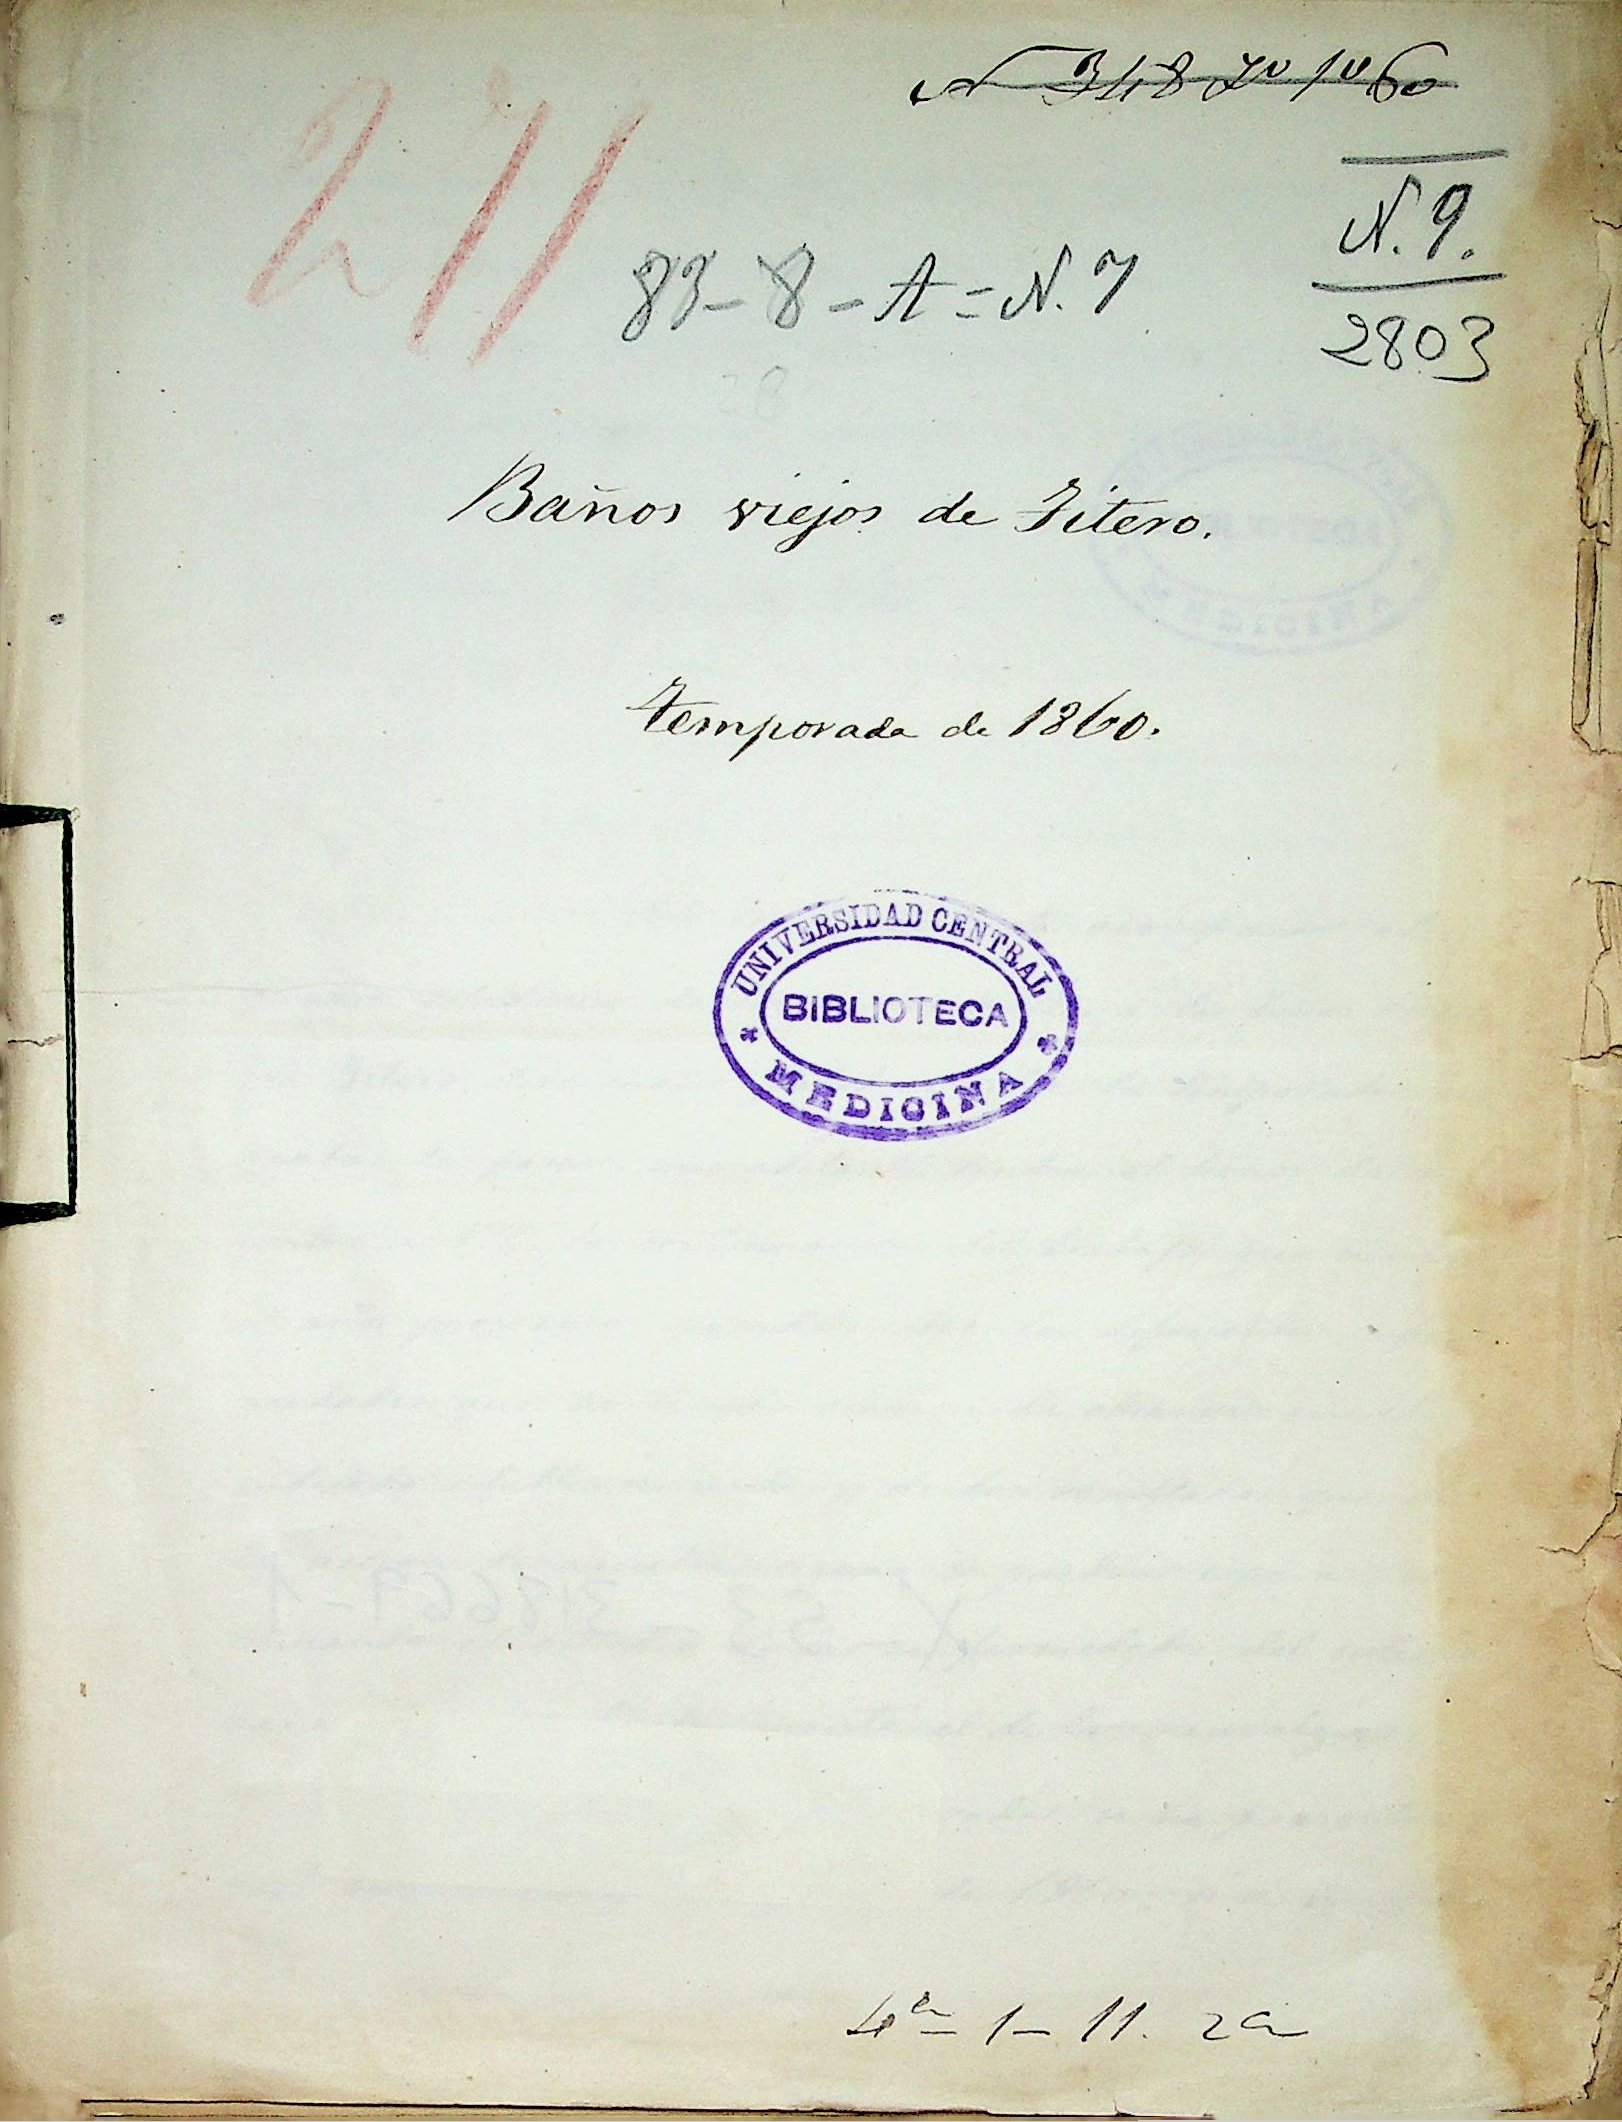 N 348
N. 9.
2803
271
83-8-A=N.7
Baños viejos de Fitero.
Temporada de 1860.
UNIVERSIDAD CENTRAL
BIBLIOTECA
MEDICINA
4ª-1-11. 2ª